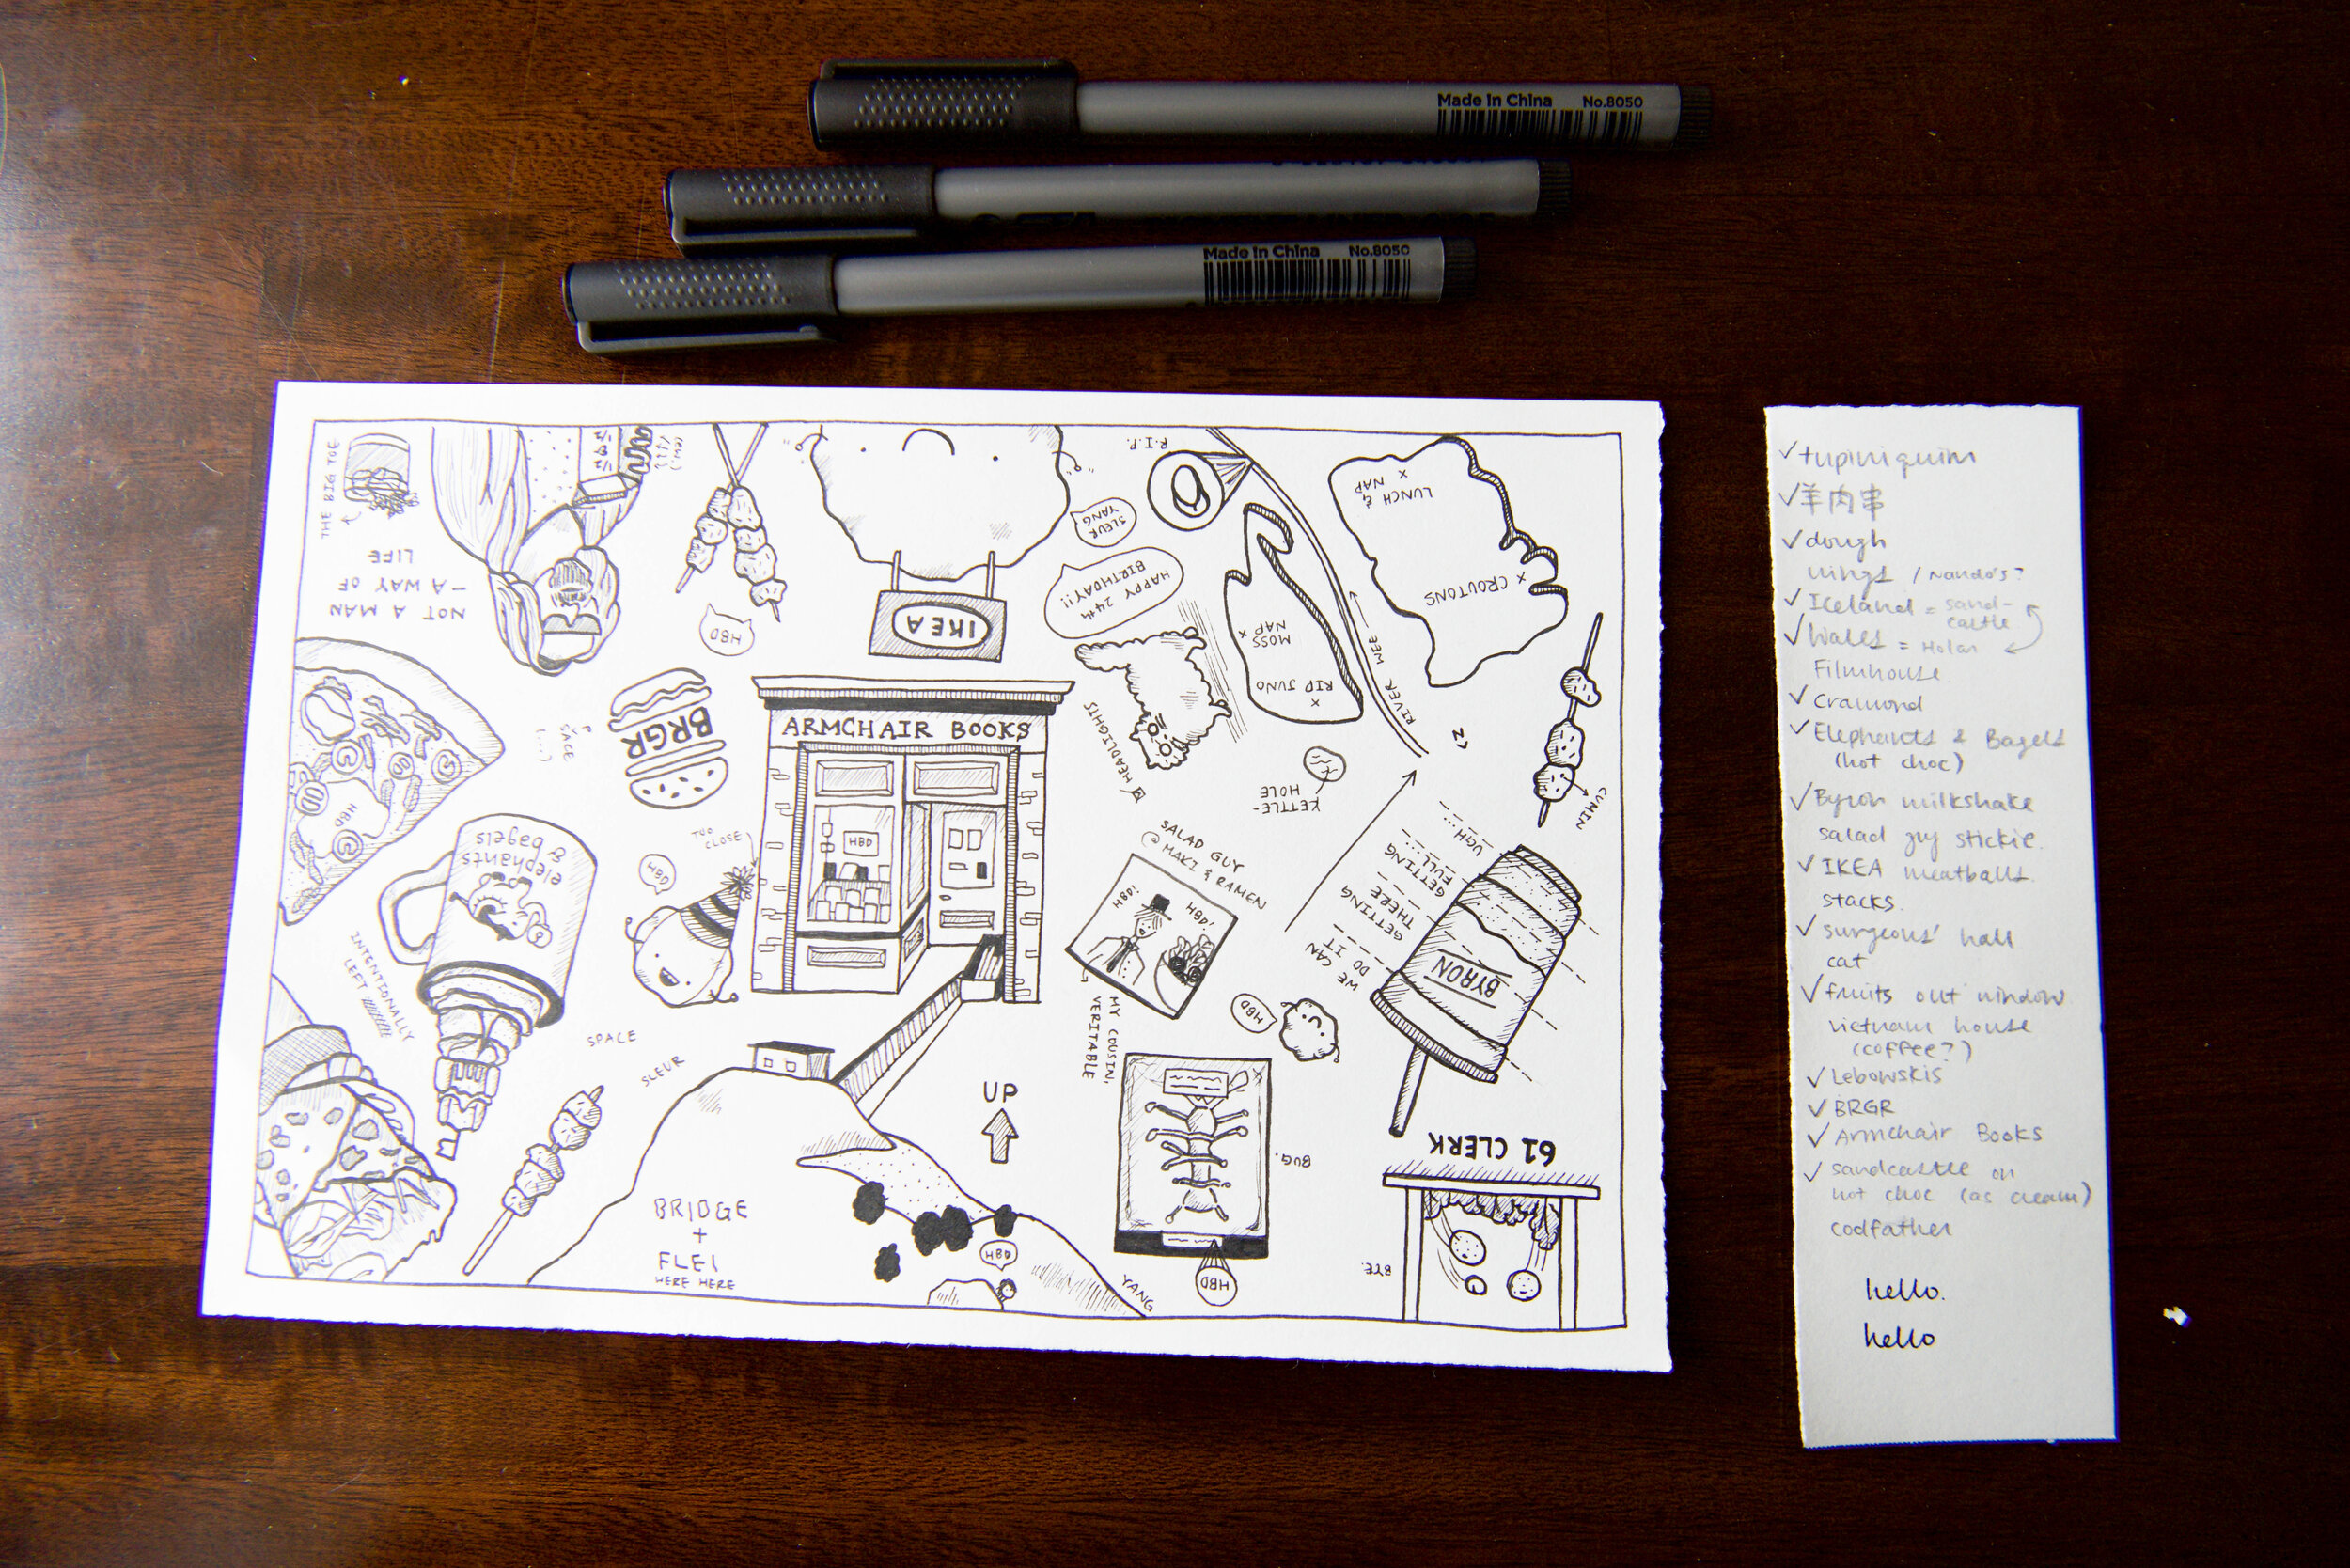 Made in China No.8050
Made in China No.8050
THE BIG TOE
NOT A MAN
— A WAY OF
LIFE
HBD
IKEA
SLEUR
YANG
HAPPY 24th
BIRTHDAY!!
R.I.P.
LUNCH &
NAP
CROUTONS
MOSS
NAP
RIP JUNO
RIVER WEE
HEADLIGHTS
KETTLE-
HOLE
CUMIN
BRGR
ARMCHAIR BOOKS
HBD
HBD
TOO
CLOSE
HBD
elephants
& bagels
INTENTIONALLY
LEFT
SPACE
SLEUR
SALAD GUY
@ MAKI & RAMEN
HBD!
HBD!
MY COUSIN,
VERITABLE
HBD
UGH...
GETTING
FULL...
GETTING
THERE
WE CAN
DO IT
BYRON
UP
BRIDGE
+
FLEI
HERE HERE
HBD
YANG
BUG.
HBD
61 CLERK
BYE.
✓ tupiniquim
✓ 羊肉串
✓ dough
wings / Nando's?
✓ Iceland = sand-
castle
✓ Wales = Holan
Filmhouse
✓ Cramond
✓ Elephants & Bagels
(hot choc)
✓ Byron milkshake
salad guy stickie.
✓ IKEA meatballs.
stacks.
✓ surgeons' hall
cat
✓ fruits out window
vietnam house
(coffee?)
✓ Lebowskis
✓ BRGR
✓ Armchair Books
✓ sandcastle on
hot choc (as cream)
codfather
hello.
hello